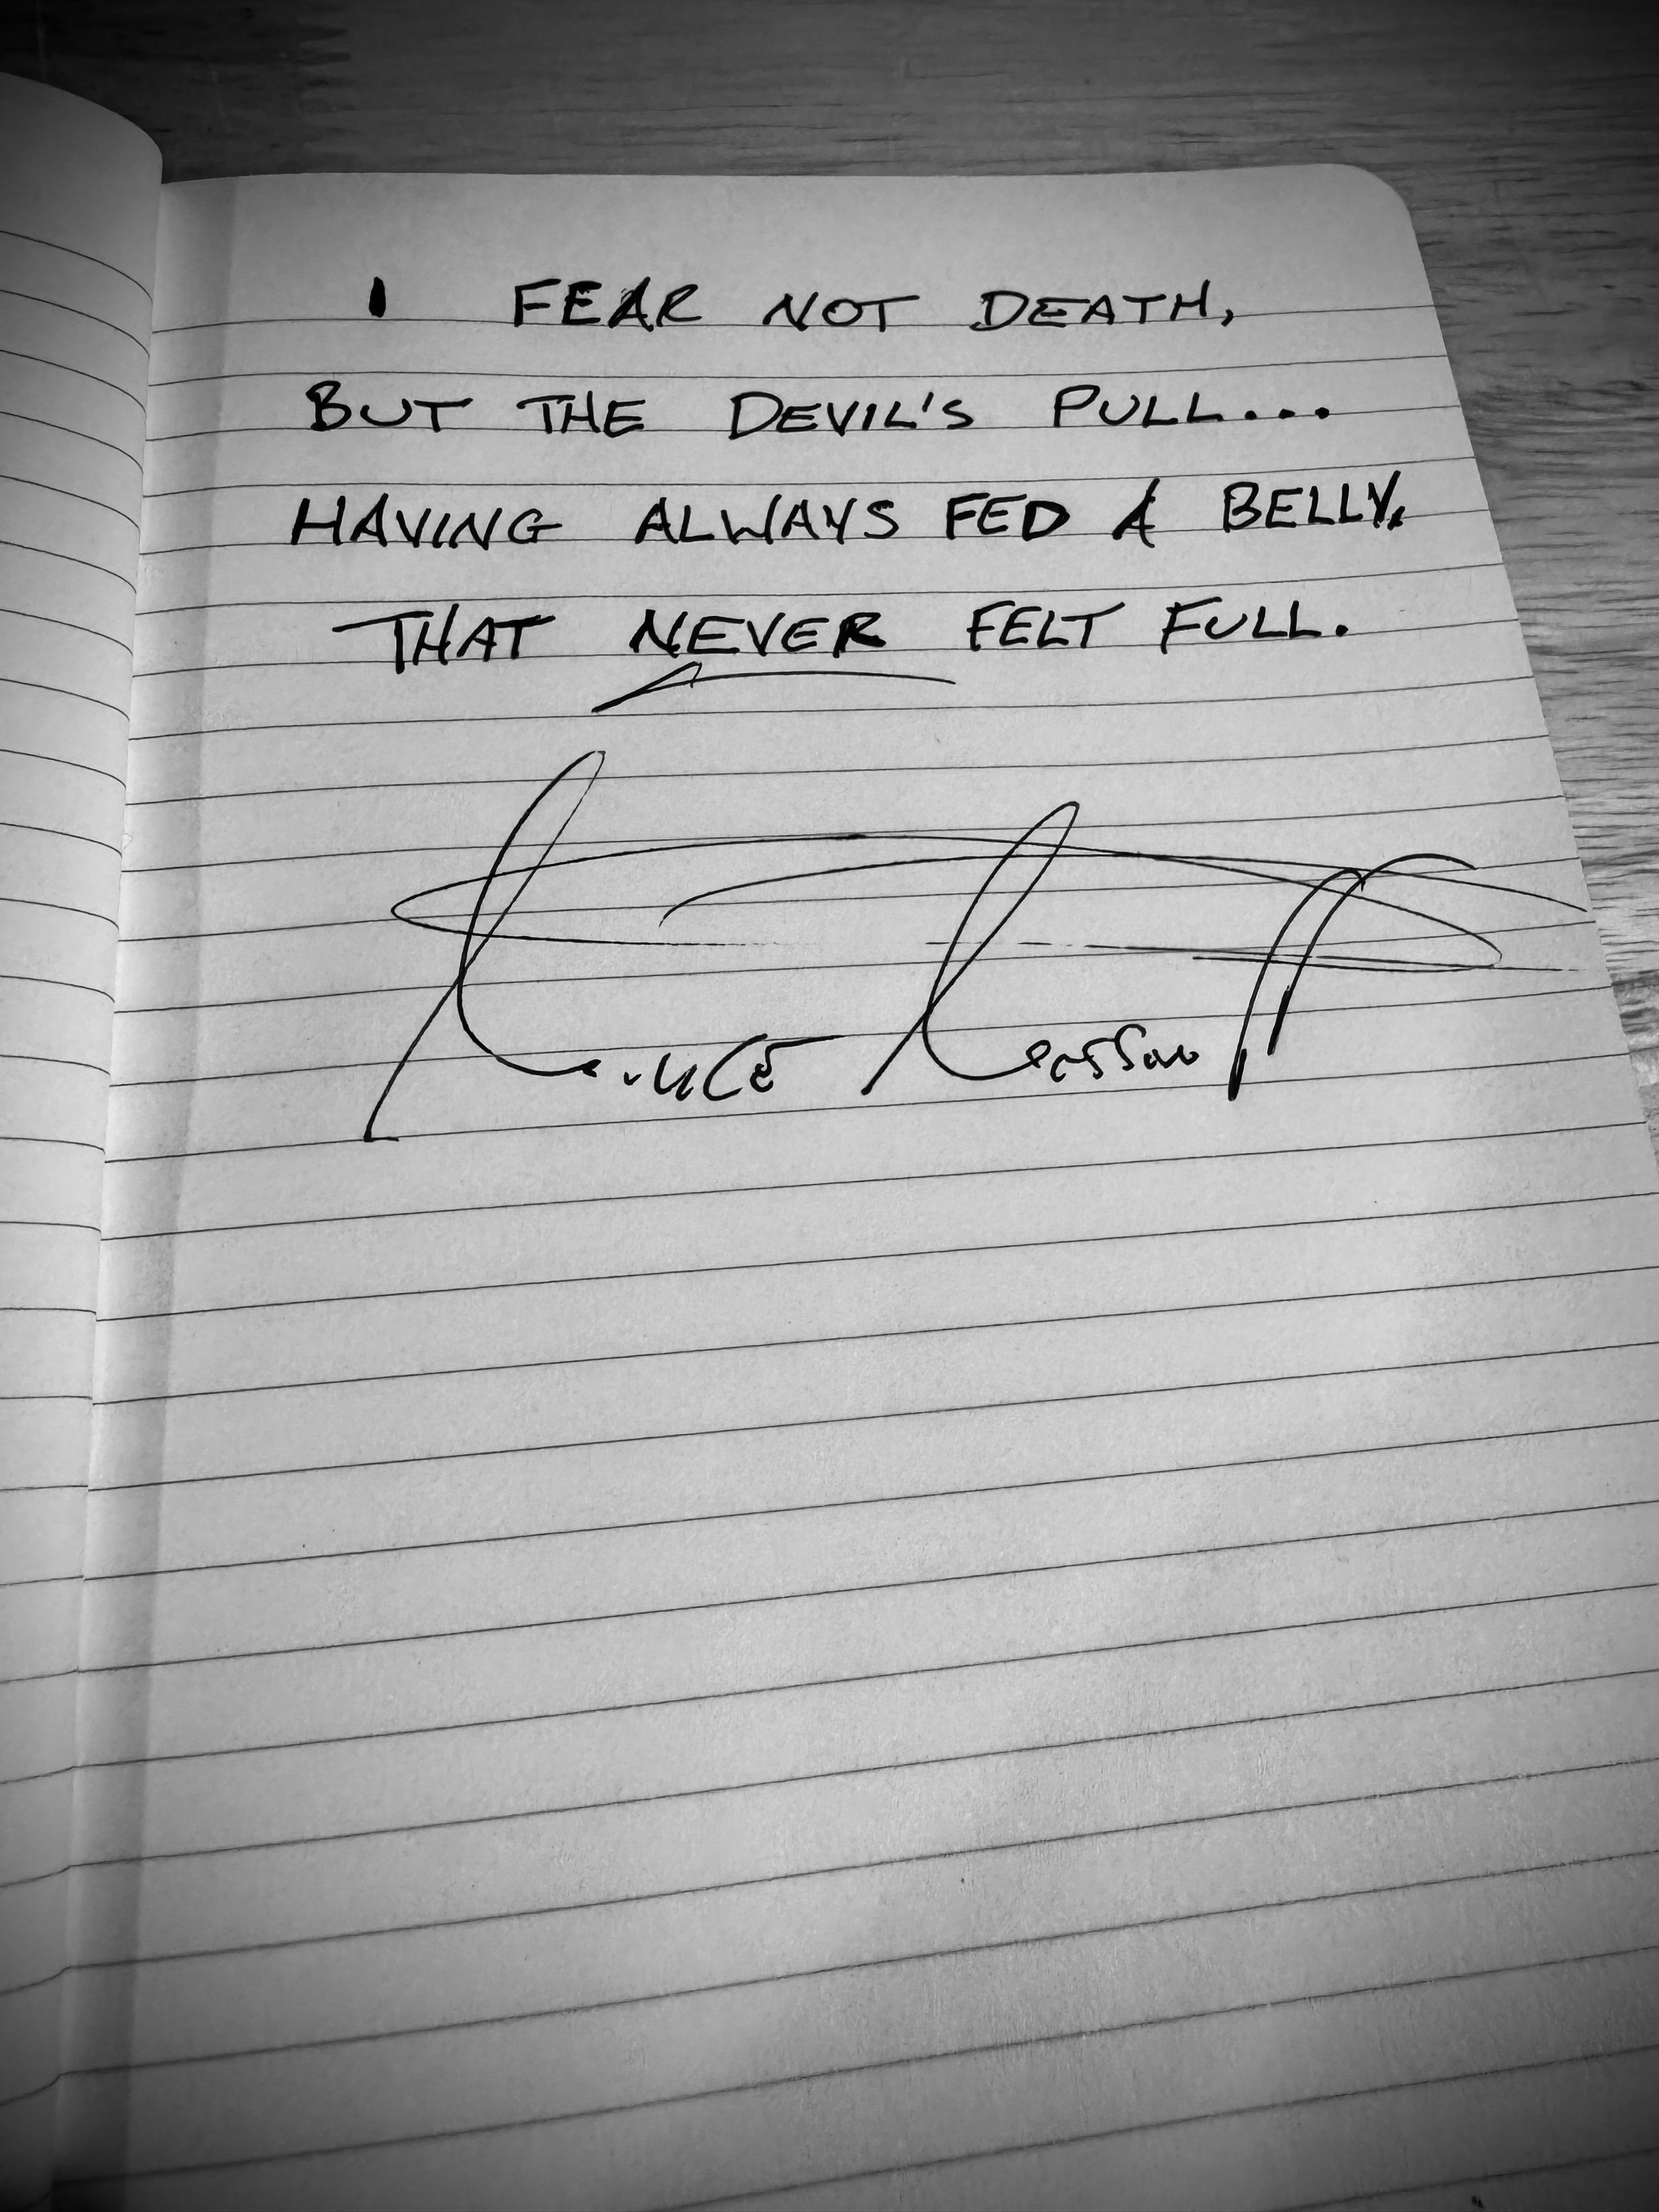 I FEAR NOT DEATH,
BUT THE DEVIL'S PULL...
HAVING ALWAYS FED A BELLY,
THAT NEVER FELT FULL.